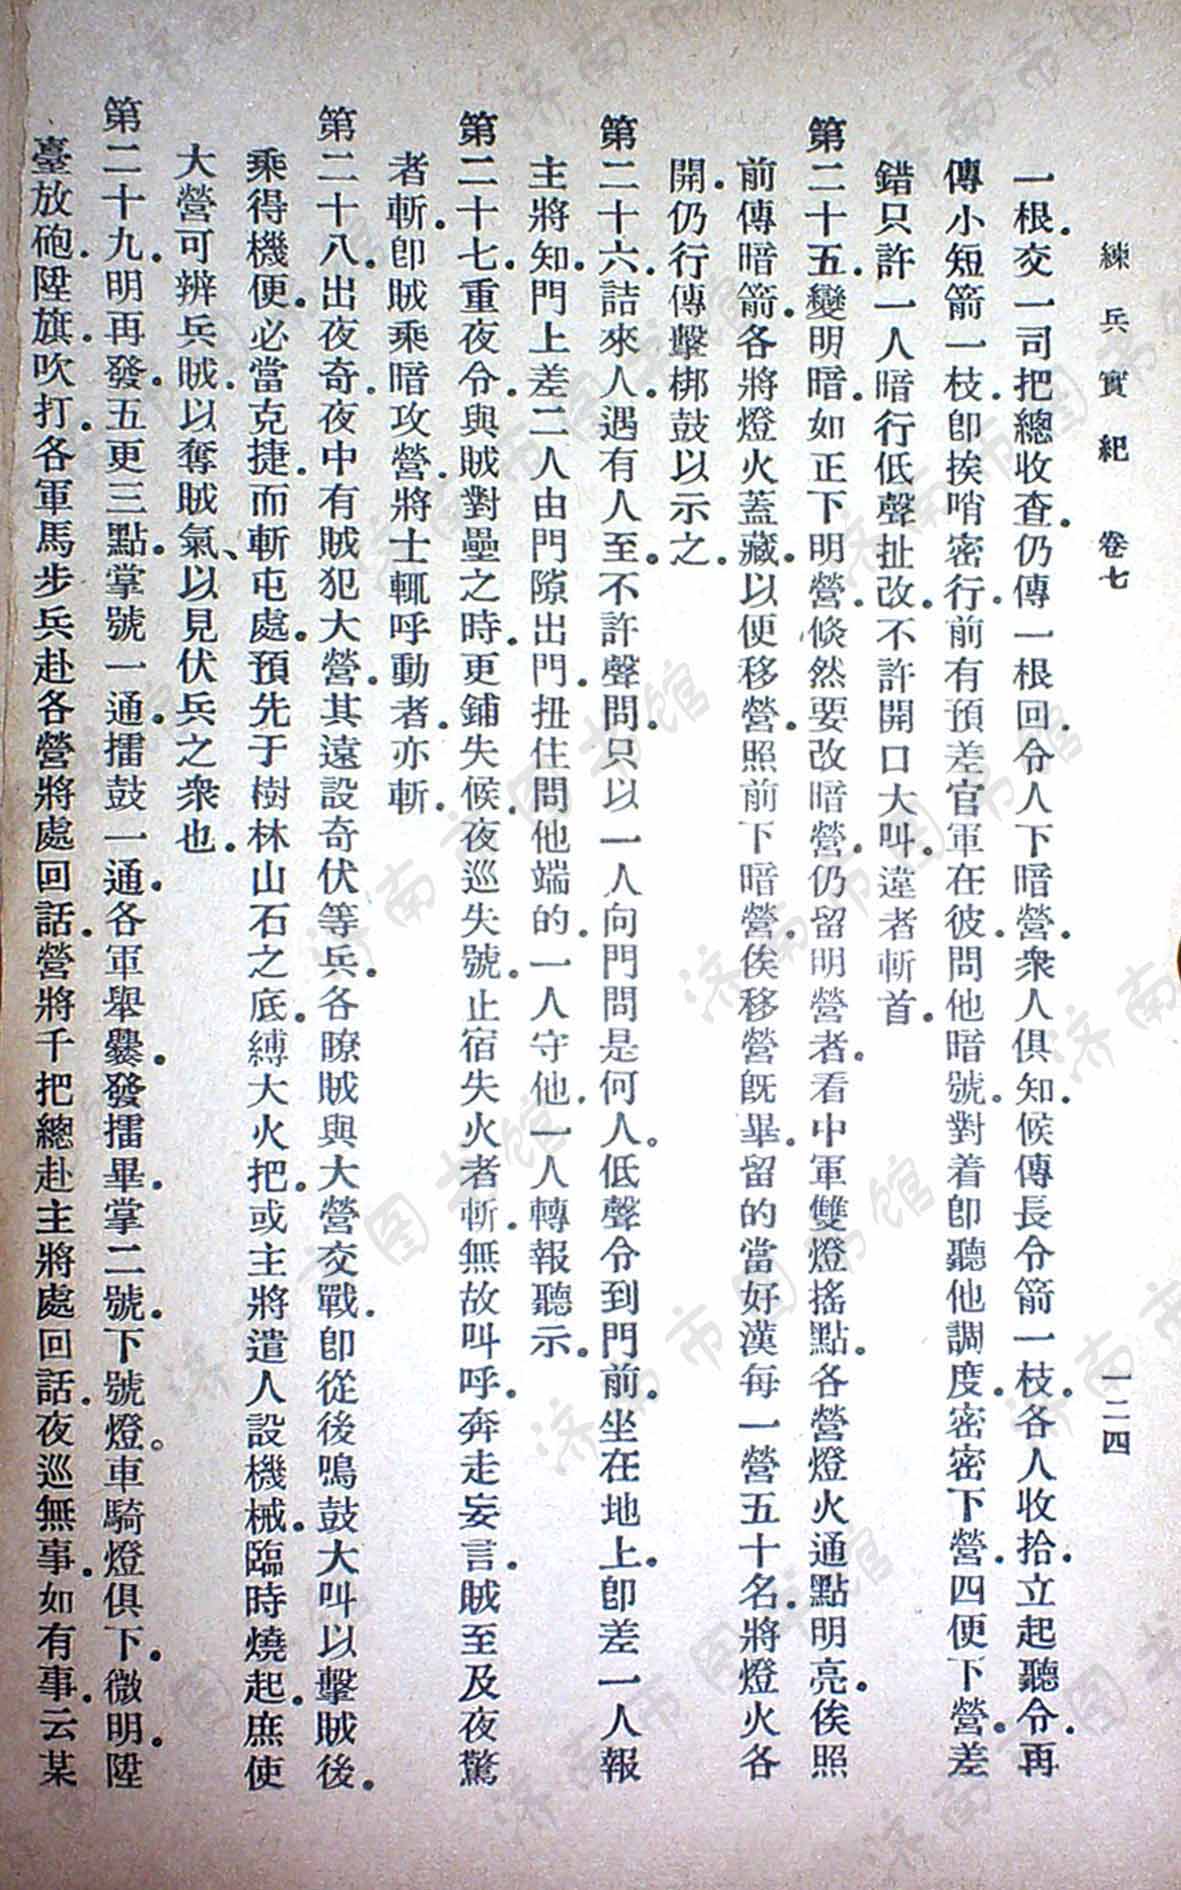 練兵實紀　卷七　一二四
一根。交一司把總收查。仍傳一根回。令人下暗營。衆人俱知。候傳長令箭一枝。各人收拾。立起聽令。再
傳小短箭一枝。卽挨哨密行。前有預差官軍在彼。問他暗號。對着卽聽他調度。密密下營。四便下營。差
錯只許一人暗行低聲扯改。不許開口大叫。違者斬首。
第二十五。變明暗。如正下明營。倏然要改暗營。仍留明營者。看中軍雙燈搖點。各營燈火通點明亮。俟照
前傳暗箭。各將燈火蓋藏。以便移營。照前下暗營。俟移營旣畢。留的當好漢。每一營五十名。將燈火各
開。仍行傳擊梆鼓以示之。
第二十六。詰來人。遇有人至。不許聲問。只以一人向門問是何人。低聲令到門前。坐在地上。卽差一人報
主將知。門上差二人由門隙出門。扭住問他端的。一人守他。一人轉報聽示。
第二十七。重夜令。與賊對壘之時。更鋪失候。夜巡失號。止宿失火者斬。無故叫呼。奔走妄言。賊至及夜驚
者斬。卽賊乘暗攻營。將士輒呼動者。亦斬。
第二十八。出夜奇。夜中有賊犯大營。其遠設奇伏等兵。各瞭賊與大營交戰。卽從後鳴鼓大叫以擊賊後。
乘得機便。必當克捷。而斬屯處。預先于樹林山石之底。縛大火把。或主將遣人設機械。臨時燒起。庶使
大營可辨兵賊。以奪賊氣、以見伏兵之衆也。
第二十九。明再發。五更三點。掌號一通。擂鼓一通。各軍舉爨。發擂畢。掌二號。下號燈。車騎燈俱下。微明。陞
臺放砲。陞旗。吹打。各軍馬步兵赴各營將處回話。營將千把總赴主將處回話。夜巡無事。如有事。云某